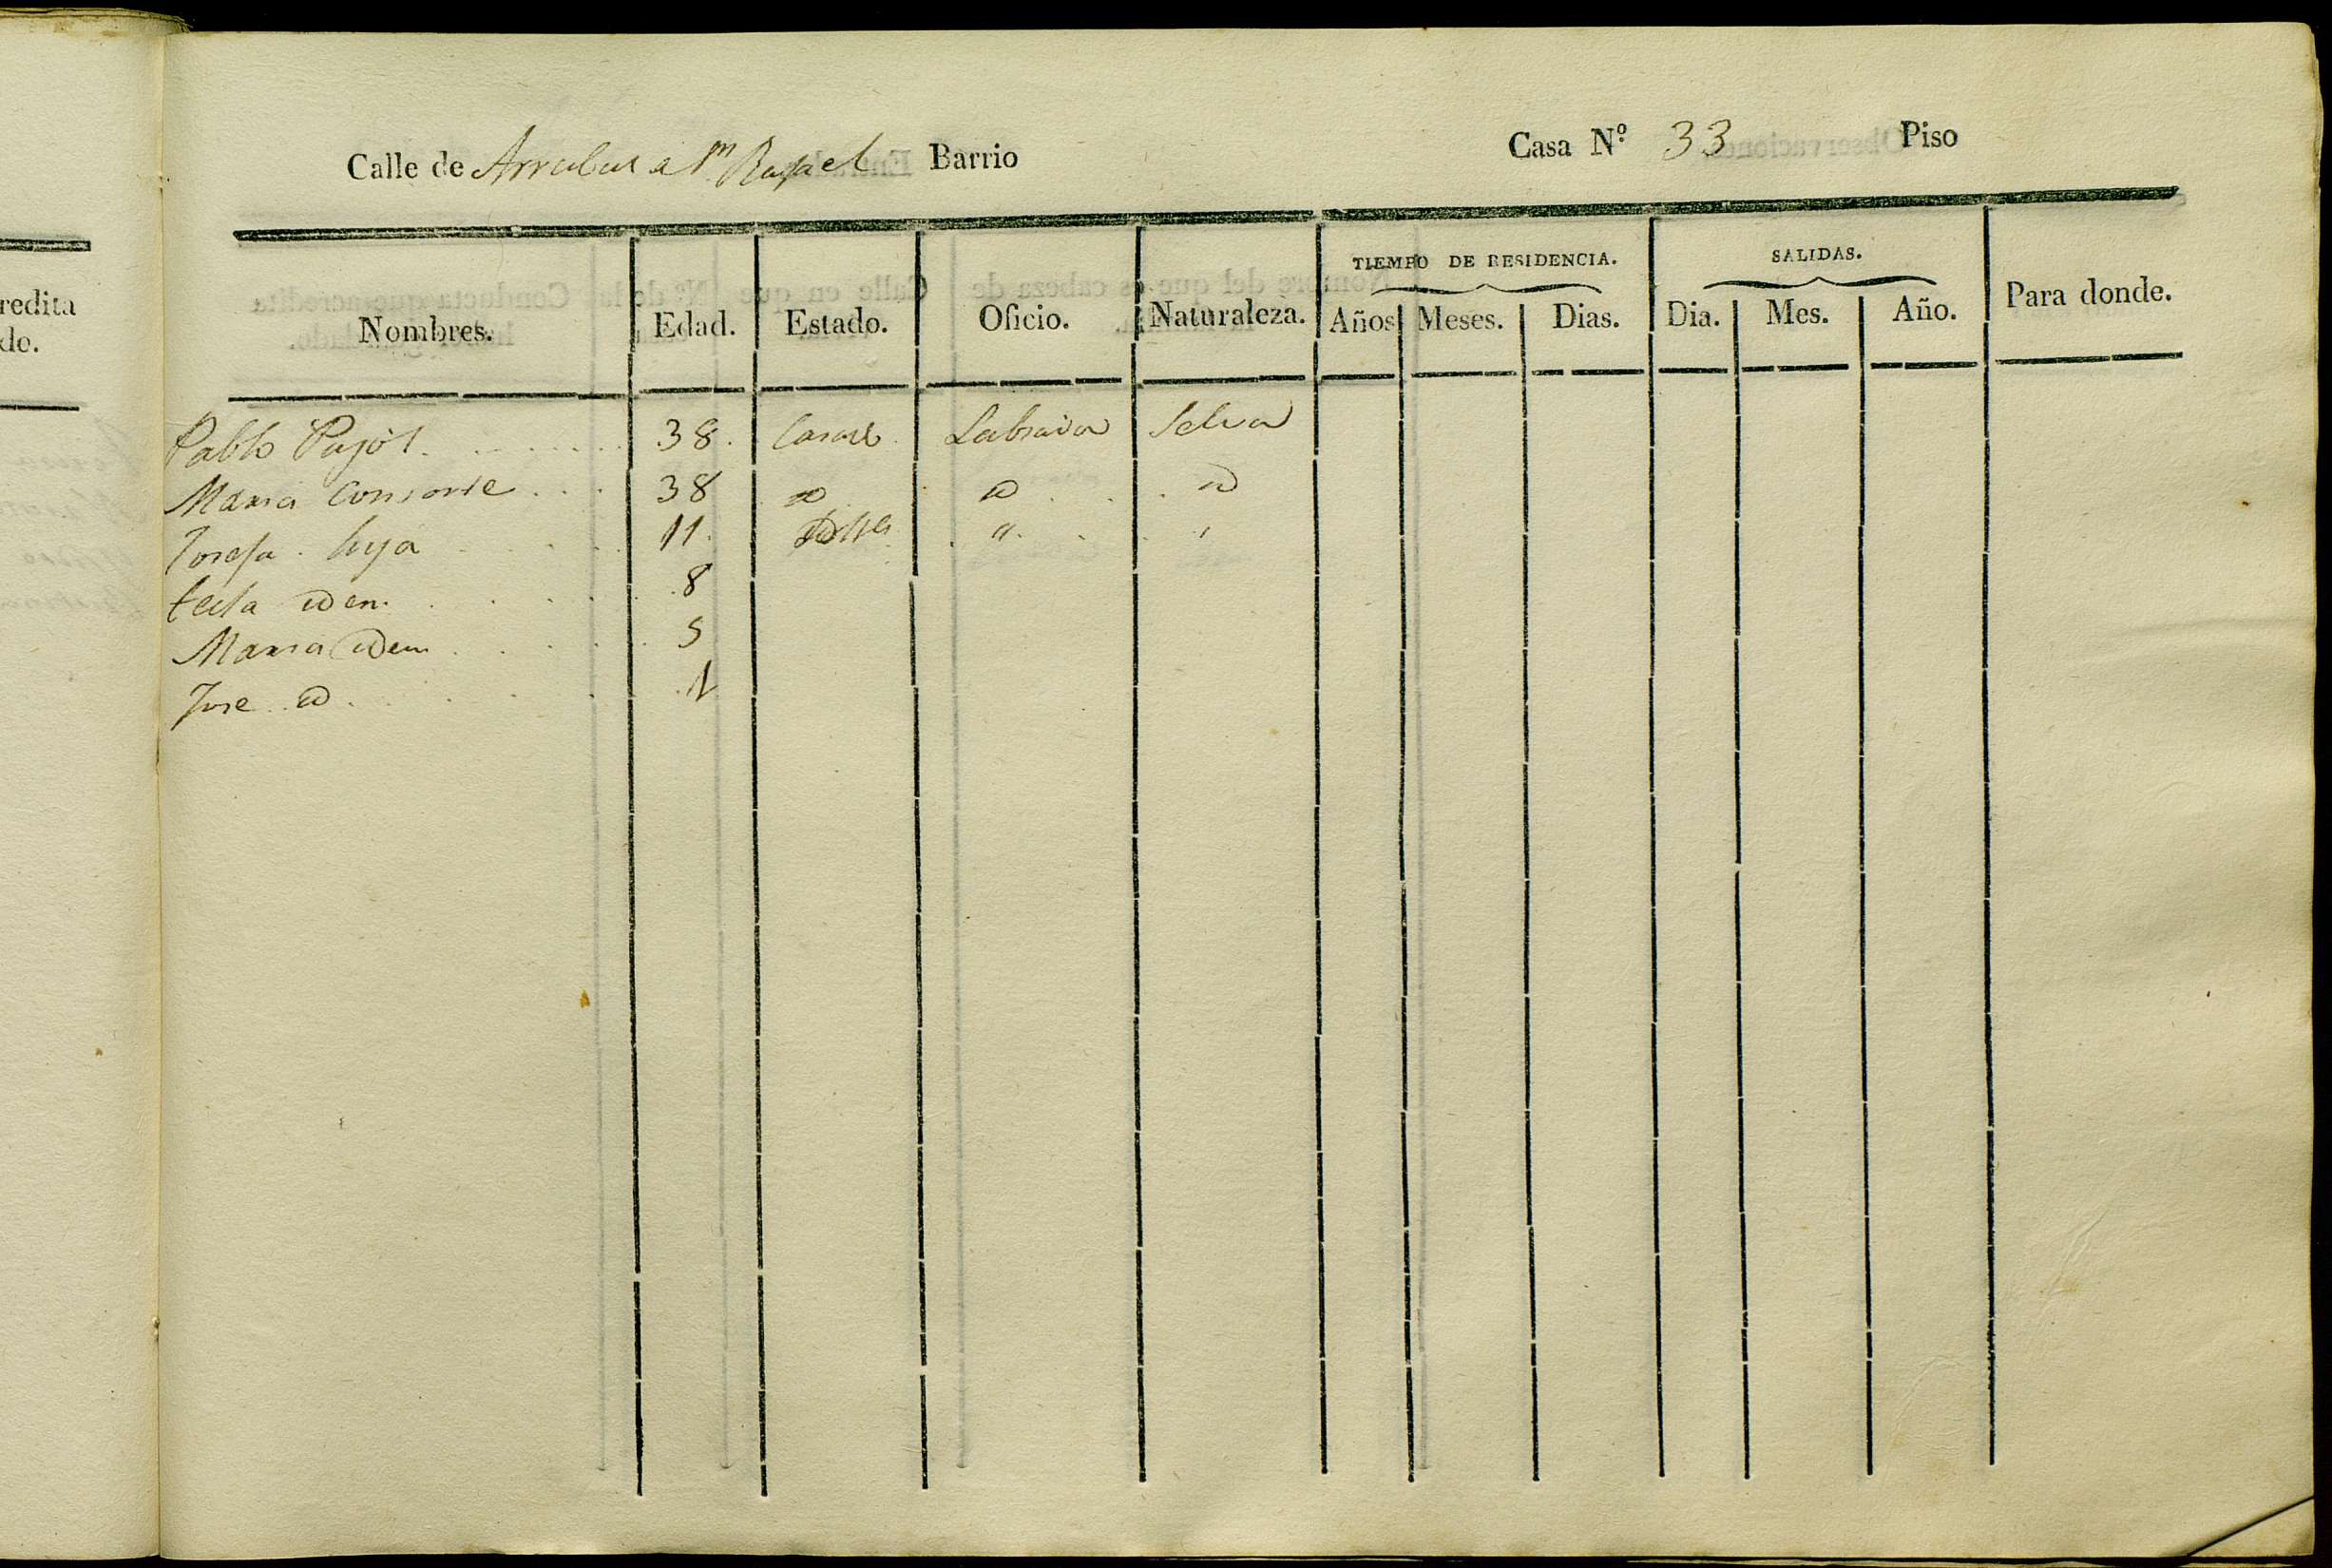 redita
do.
Calle de Arrabal a Sn Rafael Barrio Casa N.º 33 Piso
TIEMPO DE RESIDENCIA. SALIDAS.
Nombres. Edad. Estado. Oficio. Naturaleza. Años Meses. Dias. Dia. Mes. Año. Para donde.
Pablo Pujól 38. Casado Labrador Selva
Maria Consorte 38 id id id
Josefa hija 11. "
tecla idem 8
Maria idem 5
Jose id 1